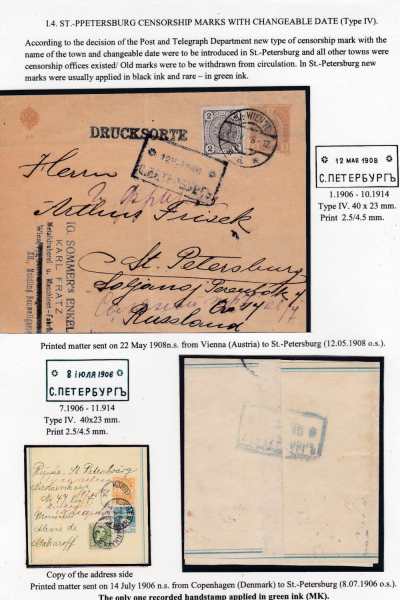 I.4. ST.-PPETERSBURG CENSORSHIP MARKS WITH CHANGEABLE DATE (Type IV).
According to the decision of the Post and Telegraph Department new type of censorship mark with the
name of the town and changeable date were to be introduced in St.-Petersburg and all other towns were
censorship offices existed/ Old marks were to be withdrawn from circulation. In St.-Petersburg new
marks were usually applied in black ink and rare – in green ink.
DRUCKSORTE
WIEN
12 МАЯ 1908
С.ПЕТЕРБУРГЪ
Herrn
Arthur
St. Petersburg
Russland
IG. SOMMER'S ENKEL
KARL FRATZ
Metalldruckerei u. Maschinen-Fabrik
Wien
12 МАЯ 1908
С.ПЕТЕРБУРГЪ
1.1906 - 10.1914
Type IV. 40 x 23 mm.
Print 2.5/4.5 mm.
Printed matter sent on 22 May 1908n.s. from Vienna (Austria) to St.-Petersburg (12.05.1908 o.s.).
8 ІЮЛЯ 1906
С.ПЕТЕРБУРГЪ
7.1906 - 11.914
Type IV. 40x23 mm.
Print 2.5/4.5 mm.
Russie, St. Petersbourg
Monsieur
Alexis de
Makaroff
Copy of the address side
Printed matter sent on 14 July 1906 n.s. from Copenhagen (Denmark) to St.-Petersburg (8.07.1906 o.s.).
The only one recorded handstamp applied in green ink (MK).